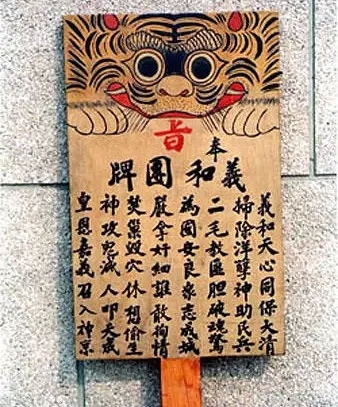 奉
旨
義和團牌
義和天心同保大清
掃除洋孽神助民兵
二毛教匪胆破魂驚
為國安良眾志成城
嚴拿奸細誰敢徇情
焚巢毀穴休想偷生
神攻鬼滅人叩天成
皇恩嘉義召入神京